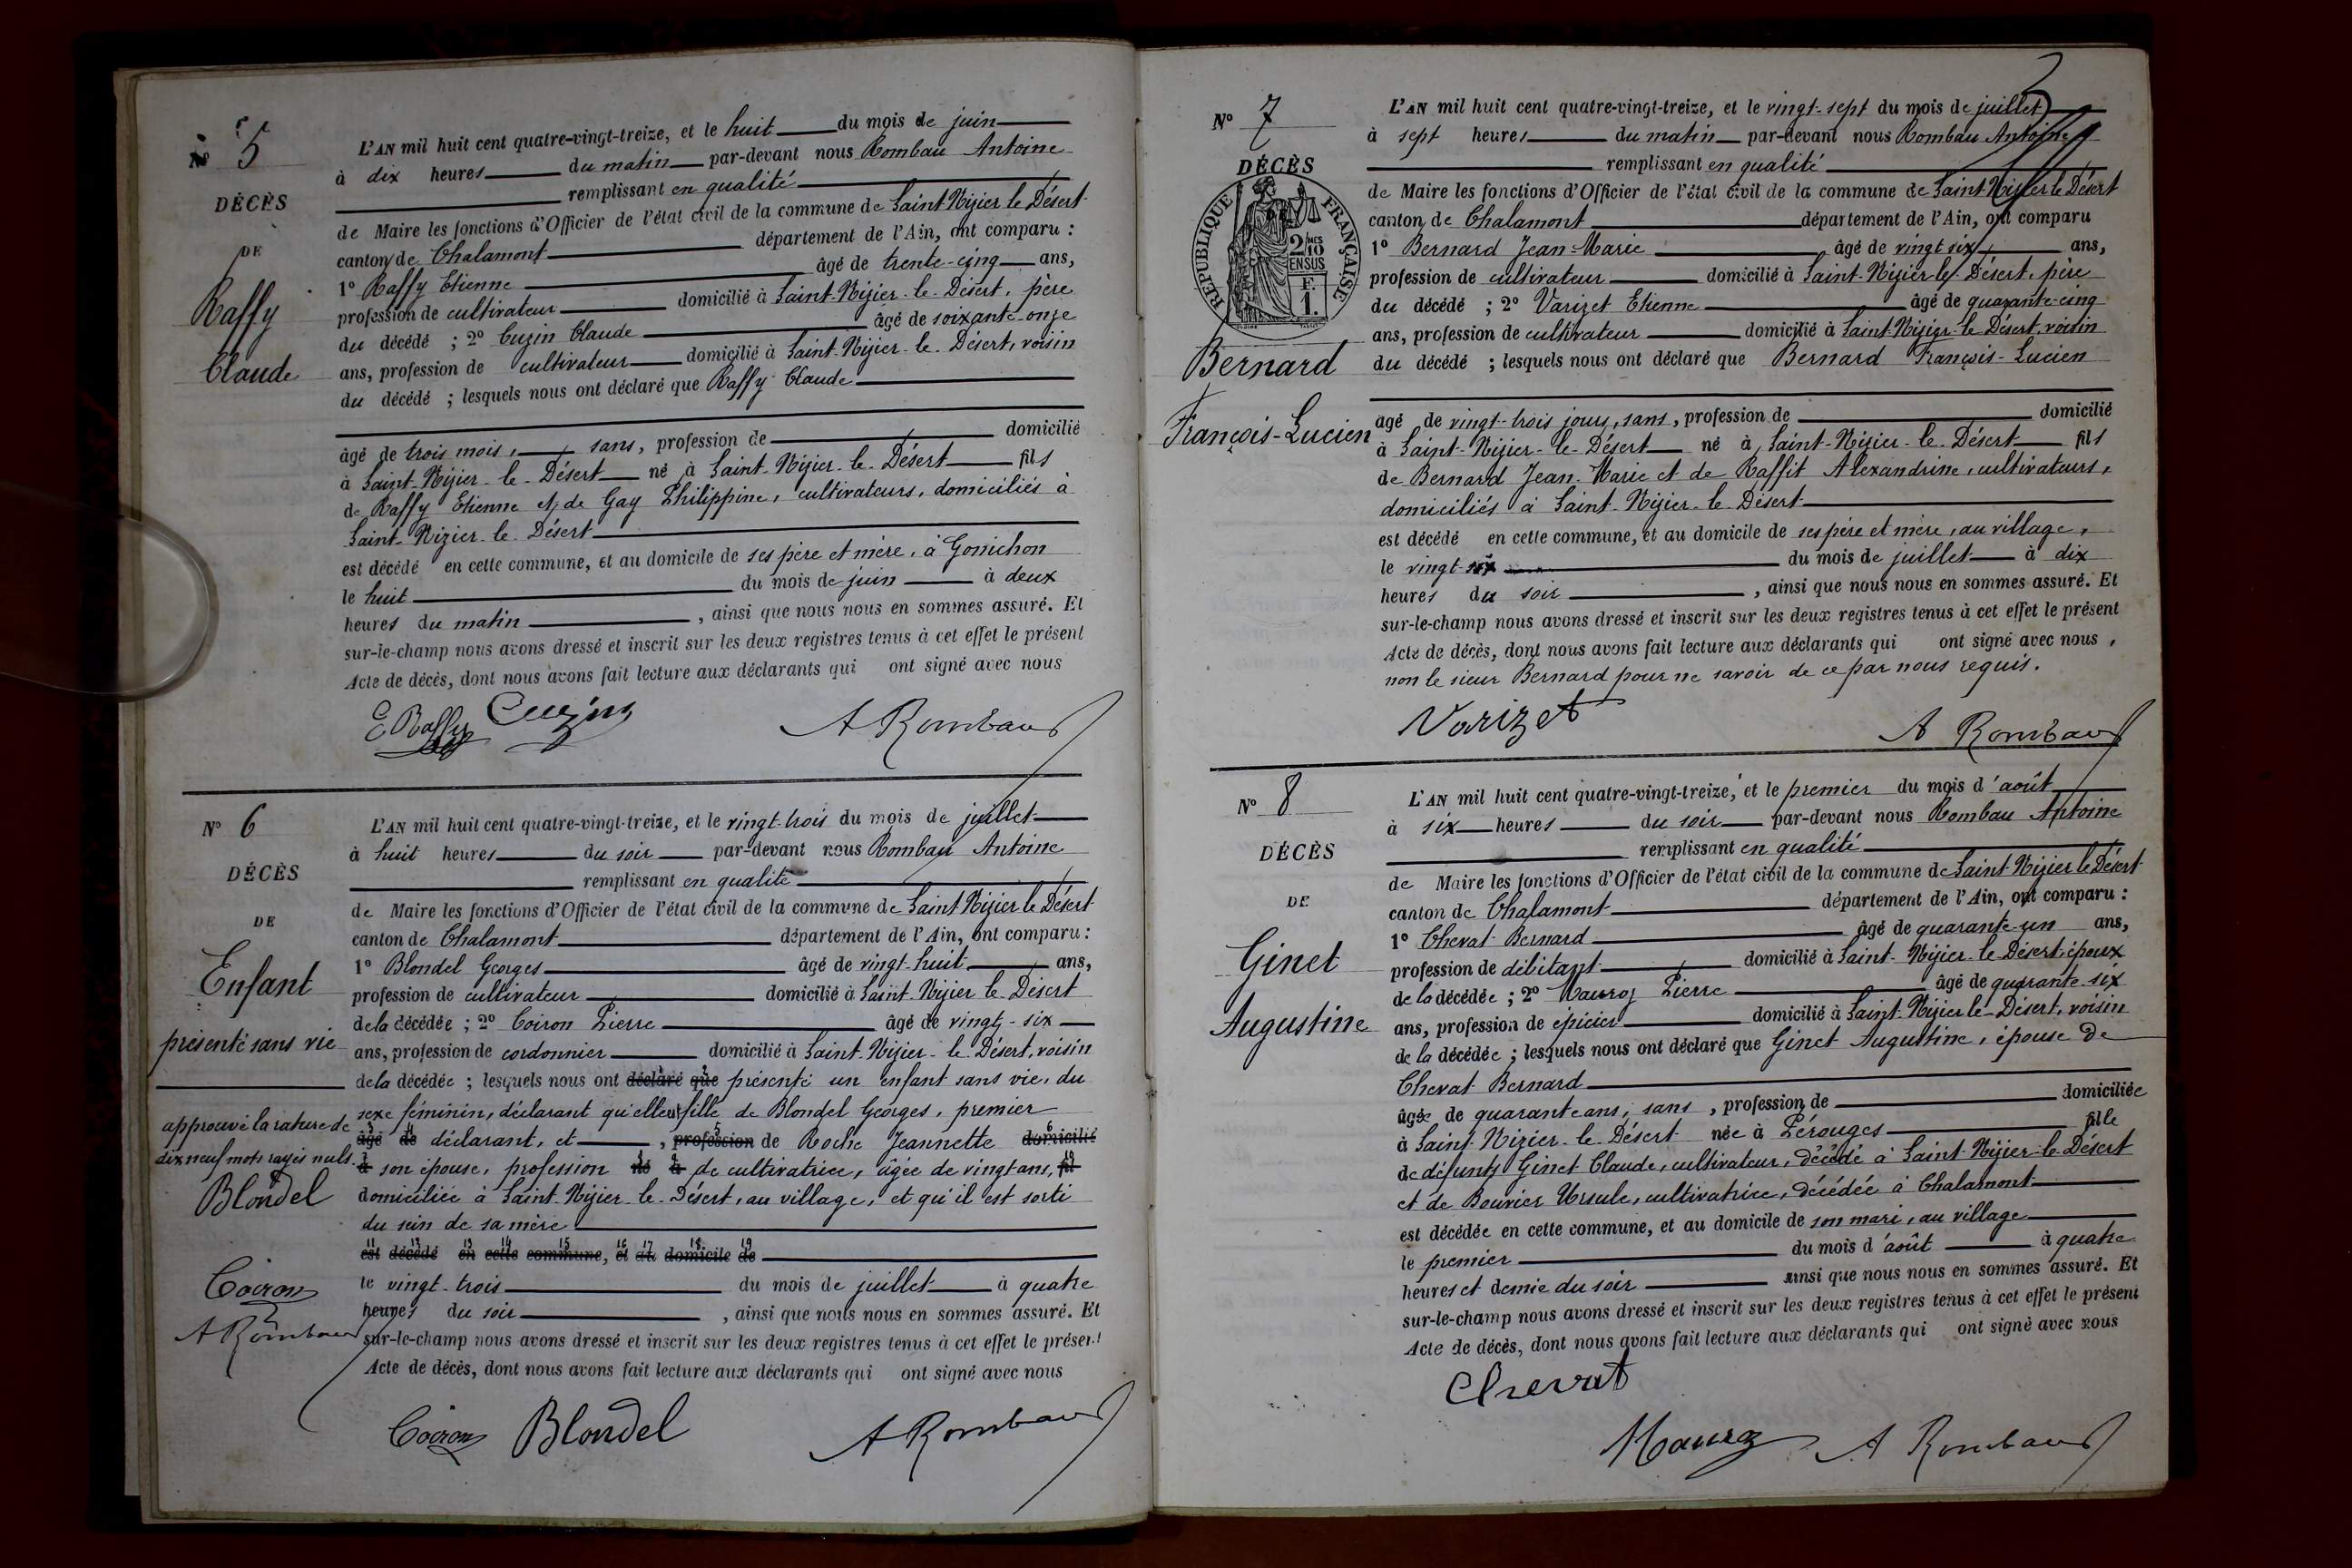 N° 5
DÉCÈS
DE
Raffy
Claude
L'AN mil huit cent quatre-vingt-treize, et le huit du mois de juin
à dix heures du matin par-devant nous Rombau Antoine
remplissant en qualité
de Maire les fonctions d'Officier de l'état civil de la commune de Saint Nizier le Désert
canton de Chalamont département de l'Ain, ont comparu :
1° Raffy Etienne âgé de trente-cinq ans,
profession de cultivateur domicilié à Saint-Nizier-le-Désert, père
du décédé ; 2° Cuzin Claude âgé de soixante-onze
ans, profession de cultivateur domicilié à Saint-Nizier-le-Désert, voisin
du décédé ; lesquels nous ont déclaré que Raffy Claude
âgé de trois mois, sans, profession de domicilié
à Saint-Nizier-le-Désert né à Saint-Nizier-le-Désert fils
de Raffy Etienne et de Gay Philippine, cultivateurs, domiciliés à
Saint-Nizier-le-Désert
est décédé en cette commune, et au domicile de ses père et mère, à Gonichon
le huit du mois de juin à deux
heures du matin , ainsi que nous nous en sommes assuré. Et
sur-le-champ nous avons dressé et inscrit sur les deux registres tenus à cet effet le présent
Acte de décès, dont nous avons fait lecture aux déclarants qui ont signé avec nous
E Raffy Cuzin A Rombau
N° 6
DÉCÈS
DE
Enfant
présenté sans vie
approuvé la rature de
dix neuf mots rayés nuls.
Blondel
Coiron
A Rombau
L'AN mil huit cent quatre-vingt-treize, et le vingt-trois du mois de juillet
à huit heures du soir par-devant nous Rombau Antoine
remplissant en qualité
de Maire les fonctions d'Officier de l'état civil de la commune de Saint Nizier le Désert
canton de Chalamont département de l'Ain, ont comparu :
1° Blondel Georges âgé de vingt-huit ans,
profession de cultivateur domicilié à Saint-Nizier-le-Désert
de la décédée ; 2° Coiron Pierre âgé de vingt-six
ans, profession de cordonnier domicilié à Saint-Nizier-le-Désert, voisin
de la décédée ; lesquels nous ont déclaré que présenté un enfant sans vie, du
sexe féminin, déclarant qu'elle est fille de Blondel Georges, premier
âgé de déclarant, et , profession de Roche Jeannette domicilié
à son épouse, profession né à de cultivatrice, âgée de vingt ans, fil
domiciliée à Saint-Nizier-le-Désert, au village, et qu'il est sorti
du sein de sa mère
est décédé en cette commune, et au domicile de
le vingt-trois du mois de juillet à quatre
heures du soir , ainsi que nous nous en sommes assuré. Et
sur-le-champ nous avons dressé et inscrit sur les deux registres tenus à cet effet le présent
Acte de décès, dont nous avons fait lecture aux déclarants qui ont signé avec nous
Coiron Blondel A Rombau
N° 7
DÉCÈS
RÉPUBLIQUE FRANÇAISE
2/10 EN SUS
F. 1.
Bernard
François-Lucien
L'AN mil huit cent quatre-vingt-treize, et le vingt-sept du mois de juillet
à sept heures du matin par-devant nous Rombau Antoine
remplissant en qualité
de Maire les fonctions d'Officier de l'état civil de la commune de Saint Nizier le Désert
canton de Chalamont département de l'Ain, ont comparu
1° Bernard Jean-Marie âgé de vingt six ans,
profession de cultivateur domicilié à Saint-Nizier-le-Désert, père
du décédé ; 2° Varizet Etienne âgé de quarante-cinq
ans, profession de cultivateur domicilié à Saint-Nizier-le-Désert, voisin
du décédé ; lesquels nous ont déclaré que Bernard François-Lucien
âgé de vingt-trois jours, sans, profession de domicilié
à Saint-Nizier-le-Désert né à Saint-Nizier-le-Désert fils
de Bernard Jean-Marie et de Raffit Alexandrine, cultivateurs,
domiciliés à Saint-Nizier-le-Désert
est décédé en cette commune, et au domicile de ses père et mère, au village,
le vingt-six du mois de juillet à dix
heures du soir , ainsi que nous nous en sommes assuré. Et
sur-le-champ nous avons dressé et inscrit sur les deux registres tenus à cet effet le présent
Acte de décès, dont nous avons fait lecture aux déclarants qui ont signé avec nous,
non le sieur Bernard pour ne savoir de ce par nous requis.
Varizet A Rombau
N° 8
DÉCÈS
DE
Ginet
Augustine
L'AN mil huit cent quatre-vingt-treize, et le premier du mois d'août
à six heures du soir par-devant nous Rombau Antoine
remplissant en qualité
de Maire les fonctions d'Officier de l'état civil de la commune de Saint-Nizier le Désert
canton de Chalamont département de l'Ain, ont comparu :
1° Chevat Bernard âgé de quarante-un ans,
profession de débitant domicilié à Saint-Nizier-le-Désert, époux
de la décédée ; 2° Mauroz Pierre âgé de quarante-six
ans, profession de épicier domicilié à Saint-Nizier-le-Désert, voisin
de la décédée ; lesquels nous ont déclaré que Ginet Augustine, épouse de
Chevat Bernard
âgée de quarante ans, sans , profession de domiciliée
à Saint-Nizier-le-Désert née à Pérouges fille
de défunts Ginet Claude, cultivateur, décédé à Saint-Nizier-le-Désert
et de Bouvier Ursule, cultivatrice, décédée à Chalamont
est décédée en cette commune, et au domicile de son mari, au village
le premier du mois d'août à quatre
heures et demie du soir ainsi que nous nous en sommes assuré. Et
sur-le-champ nous avons dressé et inscrit sur les deux registres tenus à cet effet le présent
Acte de décès, dont nous avons fait lecture aux déclarants qui ont signé avec nous
Chevat
A Rombau